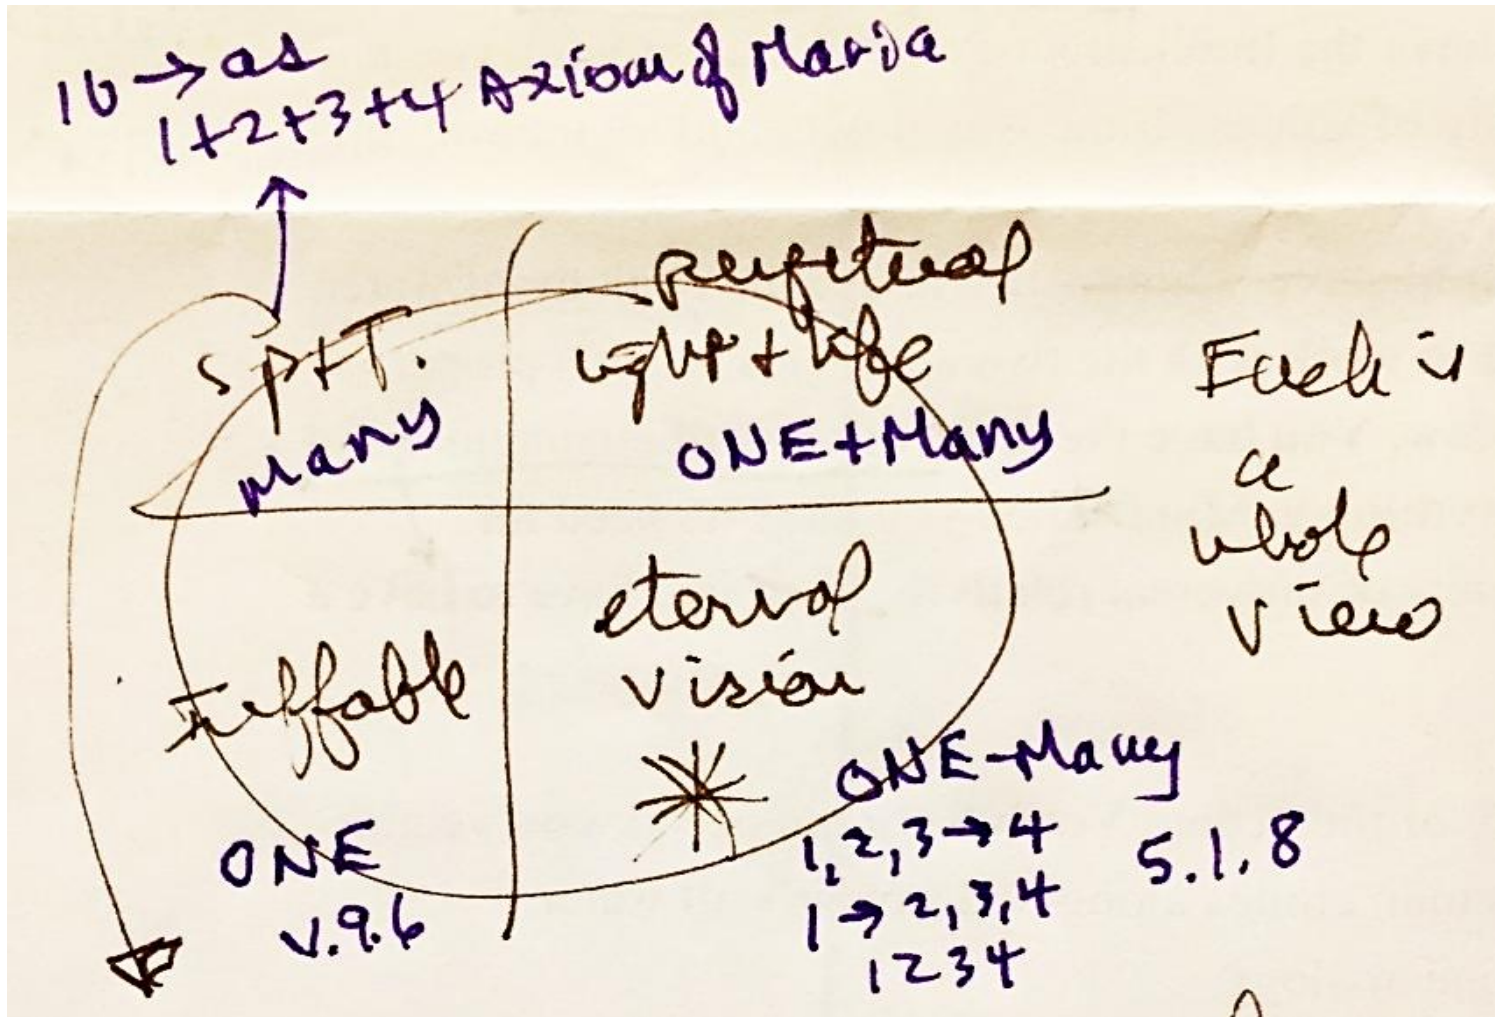 → as
1+2+3+4 Axiom of Maria
sp+T.
Many
perpetual
light + life
ONE+Many
Each is
a
whole
view
Ineffable
ONE
V.9.6
eternal
vision
ONE-Many
1,2,3→4
1→2,3,4
1234
5.1.8